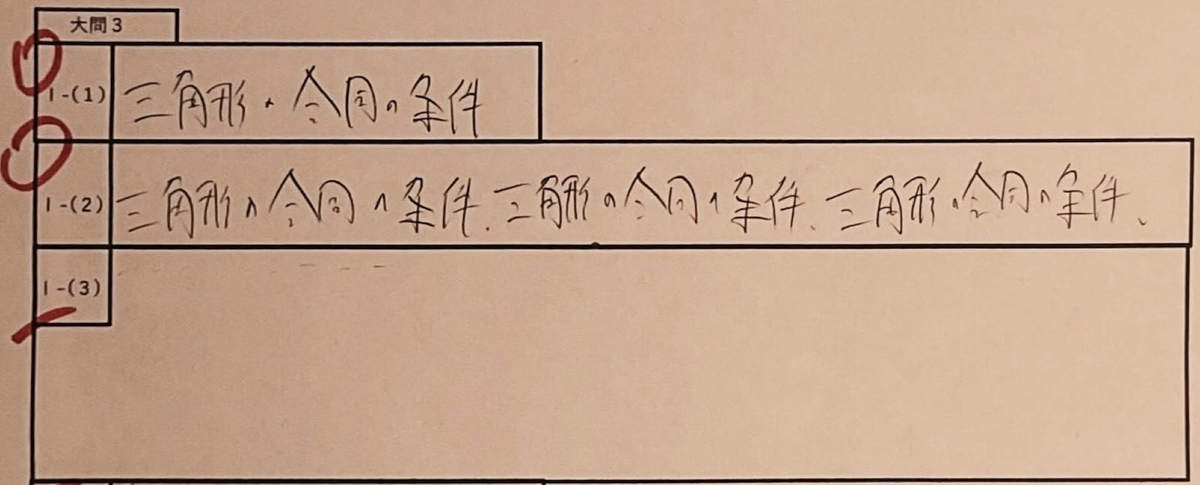 大問3
1-(1) 三角形の合同の条件
1-(2) 三角形の合同の条件、三角形の合同の条件、三角形の合同の条件、
1-(3)